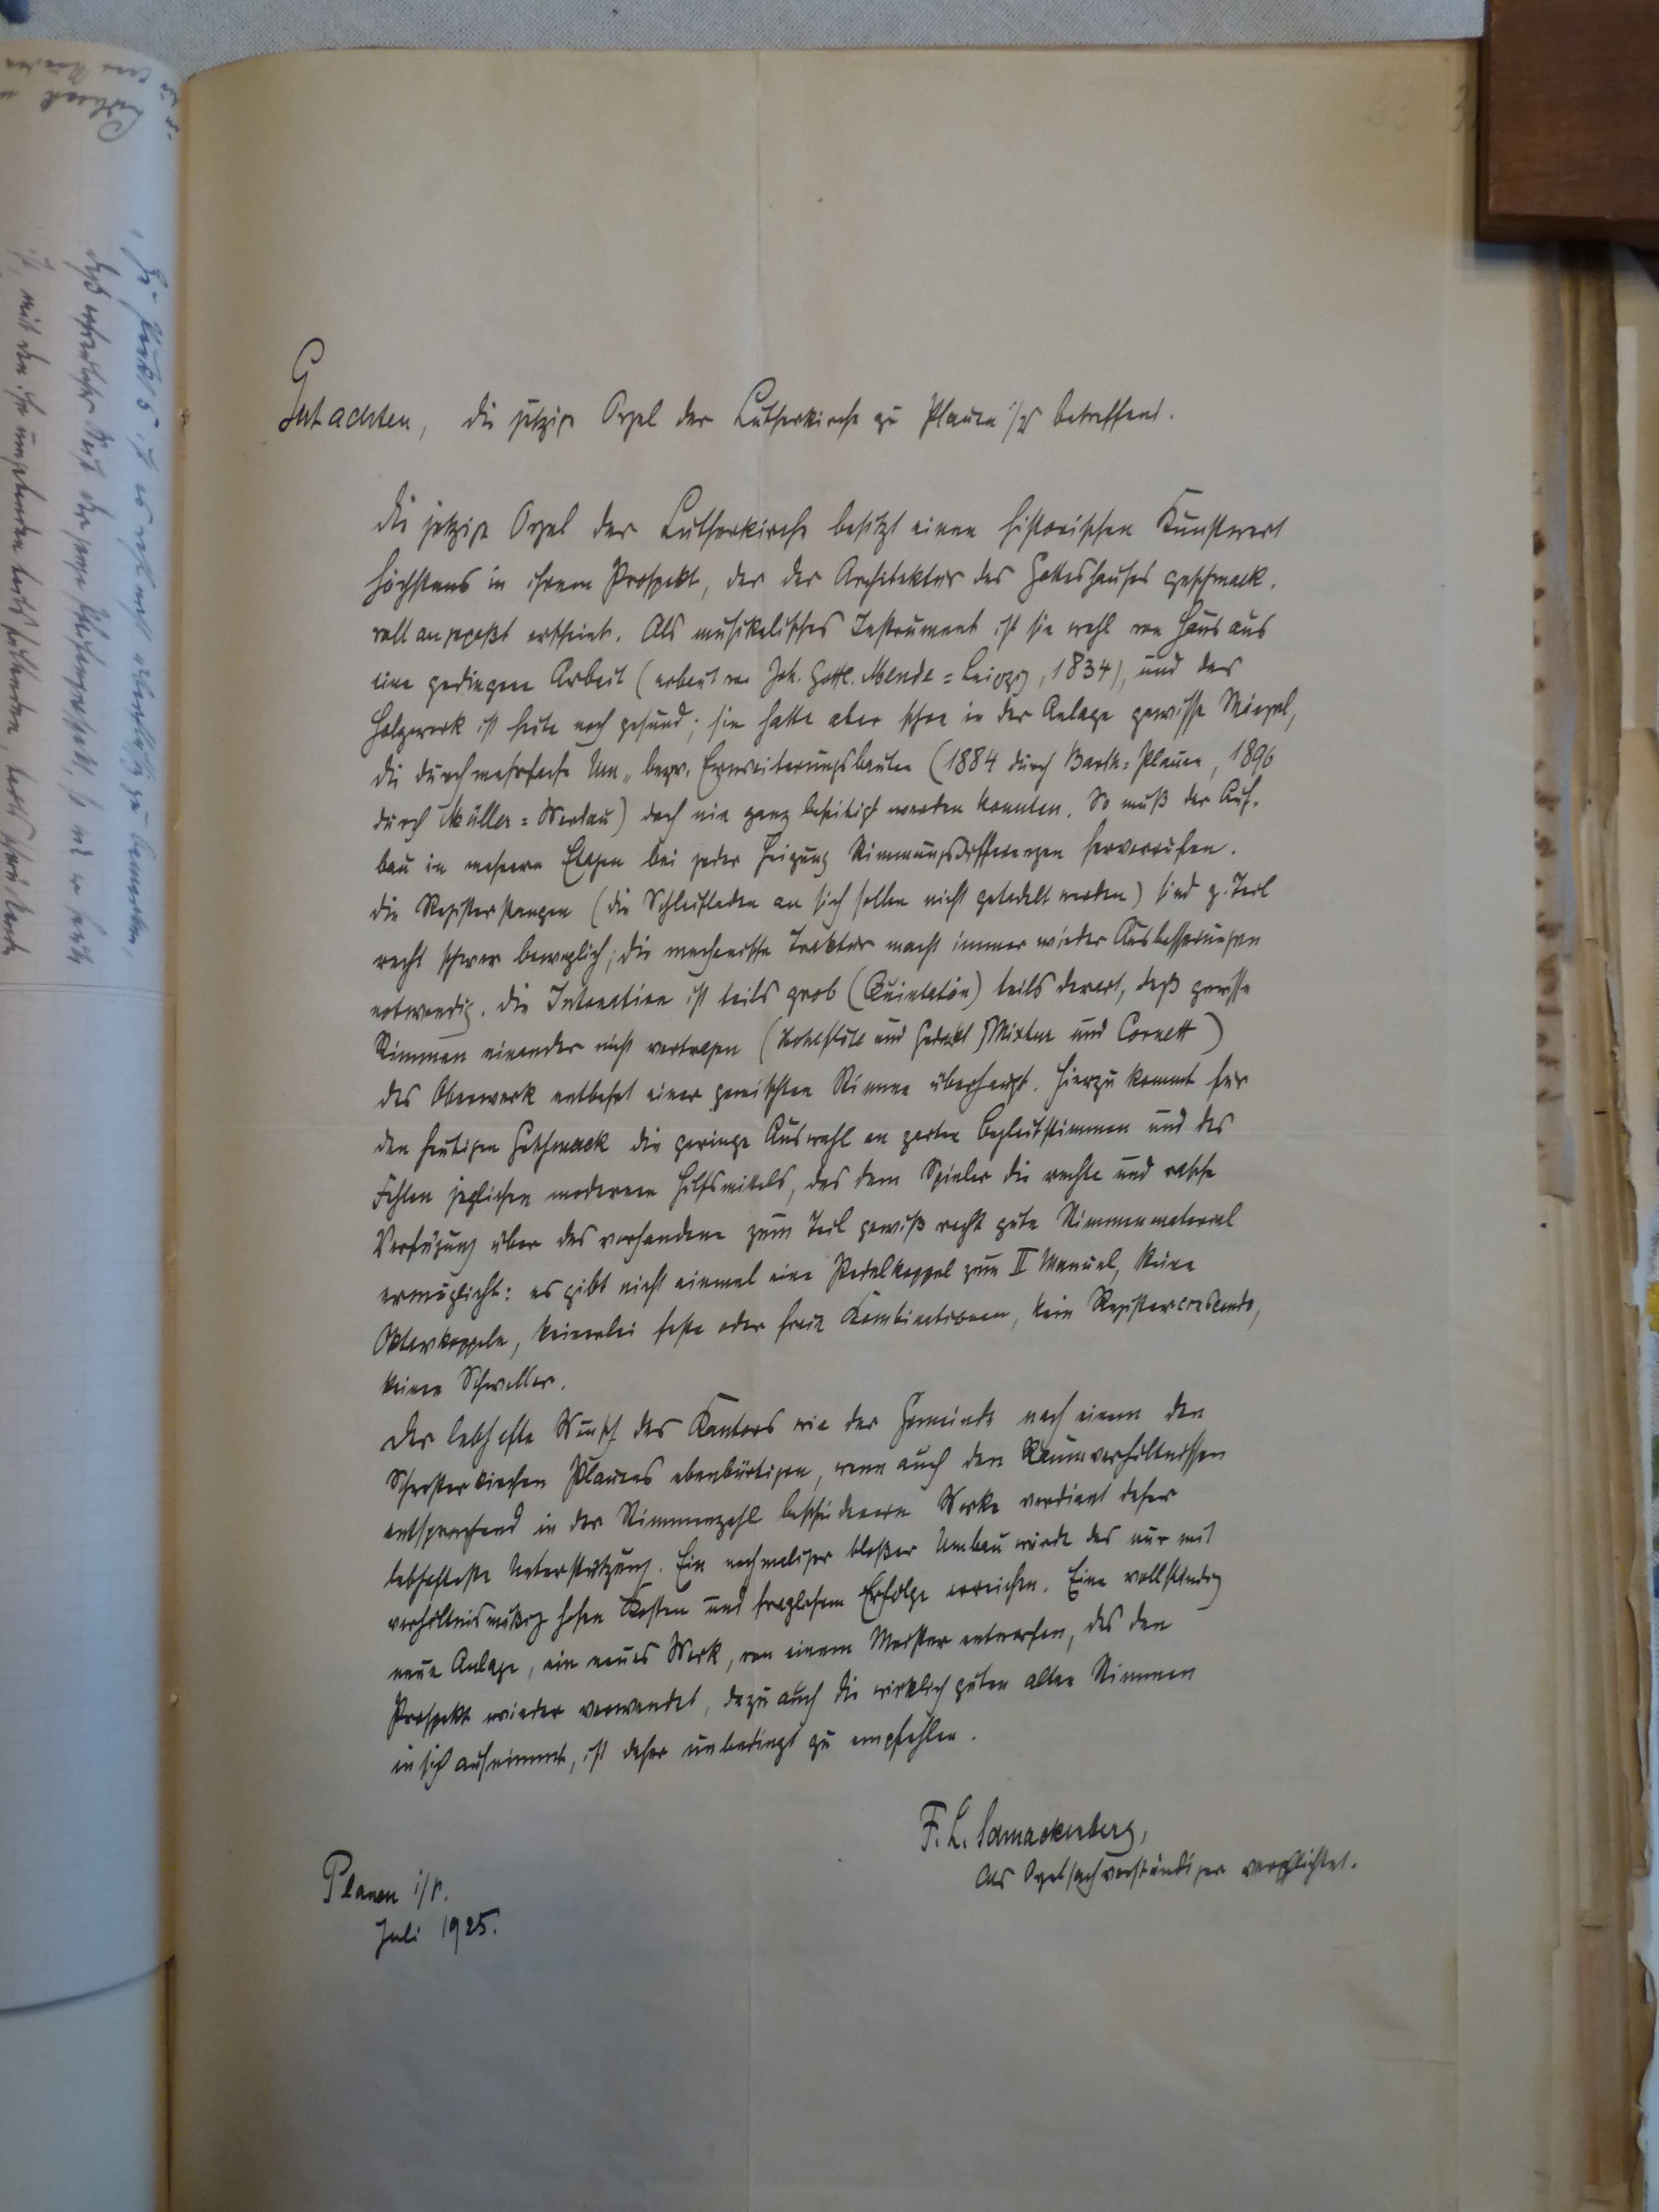 Gutachten, die jetzige Orgel der Lutherkirche zu Plauen i/V betreffend.
Die jetzige Orgel der Lutherkirche besitzt einen historischen Kunstwert
höchstens in ihrem Prospekt, der der Architektur des Gotteshauses geschmack-
voll angepaßt erscheint. Als musikalisches Instrument ist sie wohl von Haus aus
eine gediegene Arbeit (erbaut von Joh. Gottl. Mende = Leipzig, 1834), und das
Holzwerk ist heute noch gesund; sie hatte aber schon in der Anlage gewisse Mängel,
die durch mehrfache Um- bezw. Erweiterungsbauten (1884 durch Barth = Plauen, 1896
durch Müller = Werdau) doch nie ganz beseitigt werden konnten. So muß der Auf-
bau in mehrern Etagen bei jeder Heizung Stimmungsdifferenzen hervorrufen.
Die Registerstangen (die Schleifladen an sich sollen nicht getadelt werden) sind z. Teil
recht schwer beweglich; die mechanische Traktur macht immer wieder Ausbesserungen
notwendig. Die Intonation ist teils grob (Quintatön) teils derart, daß gewisse
Stimmen einander nicht vertragen (Hohlflöte und Gedackt, Mixtur und Cornett)
Das Oberwerk entbehrt einer gemischten Stimme überhaupt. Hierzu kommt für
den heutigen Geschmack die geringe Auswahl an zarten Begleitstimmen und das
Fehlen jeglichen modernen Hilfsmittels, das dem Spieler die rechte und rasche
Verfügung über das vorhandene zum Teil gewiß recht gute Stimmenmaterial
ermöglicht: es gibt nicht einmal eine Pedalkoppel zum II Manual, keine
Oktavkoppeln, keinerlei feste oder freie Kombinationen, kein Registercrescendo,
keinen Schweller.
Der lebhafte Wunsch des Kantors wie der Gemeinde nach einem den
Schwesterkirchen Plauens ebenbürtigen, wenn auch den Raumverhältnissen
entsprechend in der Stimmenzahl bescheidenern Werke verdient daher
lebhafteste Unterstützung. Ein nochmaliger bloßer Umbau würde das nur mit
verhältnismäßig hohen Kosten und fraglichem Erfolge erreichen. Eine vollständig
neue Anlage, ein neues Werk, von einem Meister entworfen, das den
Prospekt wieder verwendet, dazu auch die wirklich guten alten Stimmen
in sich aufnimmt, ist daher unbedingt zu empfehlen.
F. L.
als Orgelsachverständiger verpflichtet.
Plauen i/V.
Juli 1925.